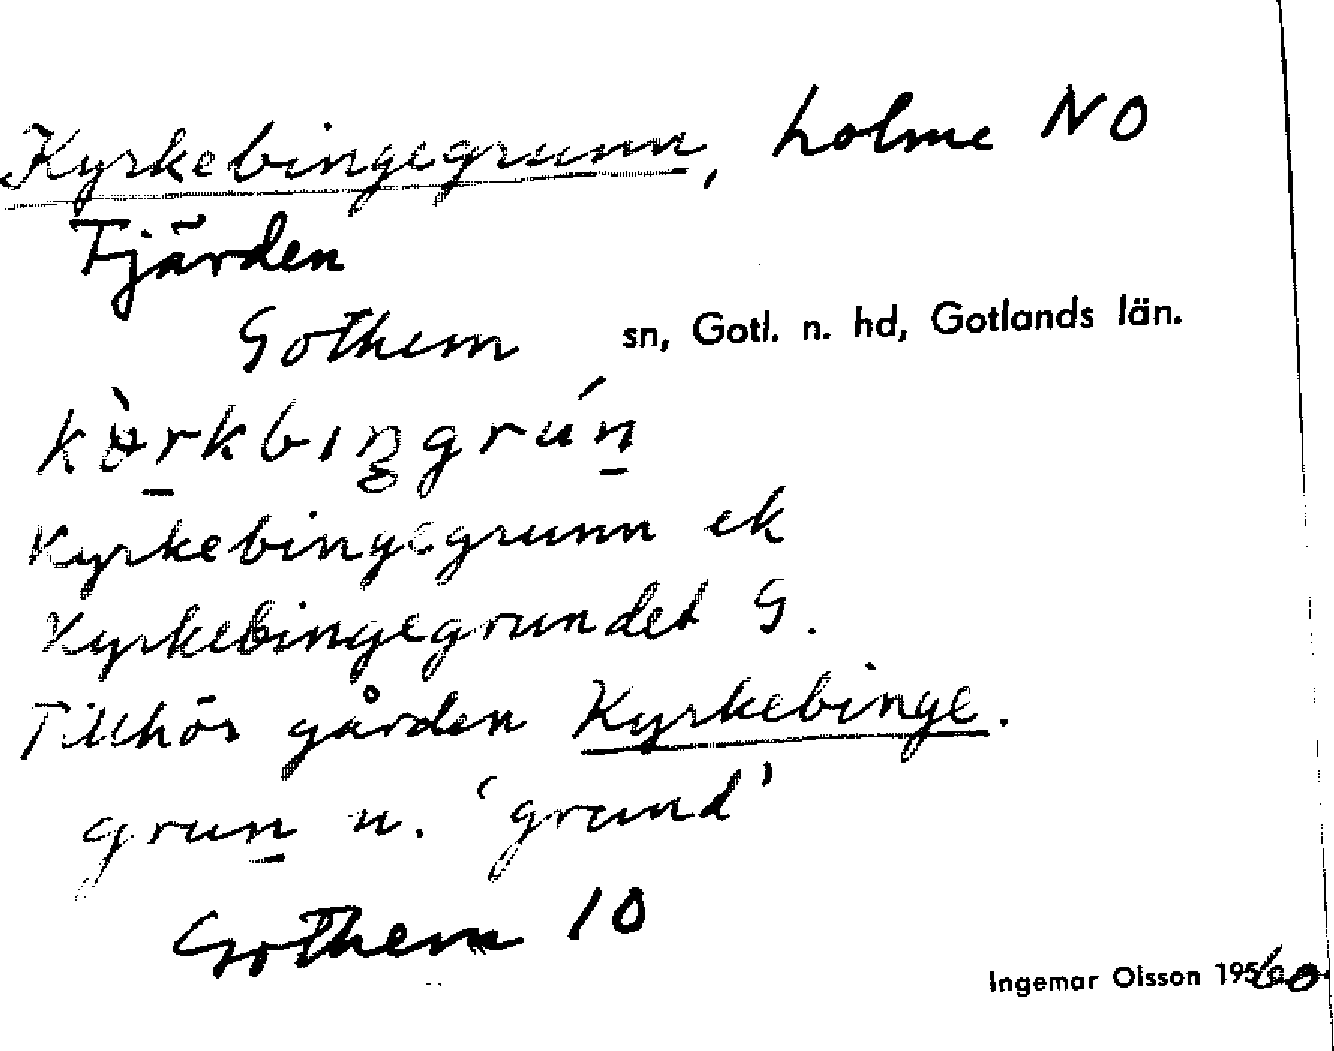 Kyrkebingegrunn, holme NO
Fjärden
Gothem sn, Gotl. n. hd, Gotlands län.
Kyrkebingegrunn ek
Kyrkebingegrundet G.
Tillhör gården Kyrkebinge.
grun n. 'grund'
Gothem 10
Ingemar Olsson 1960